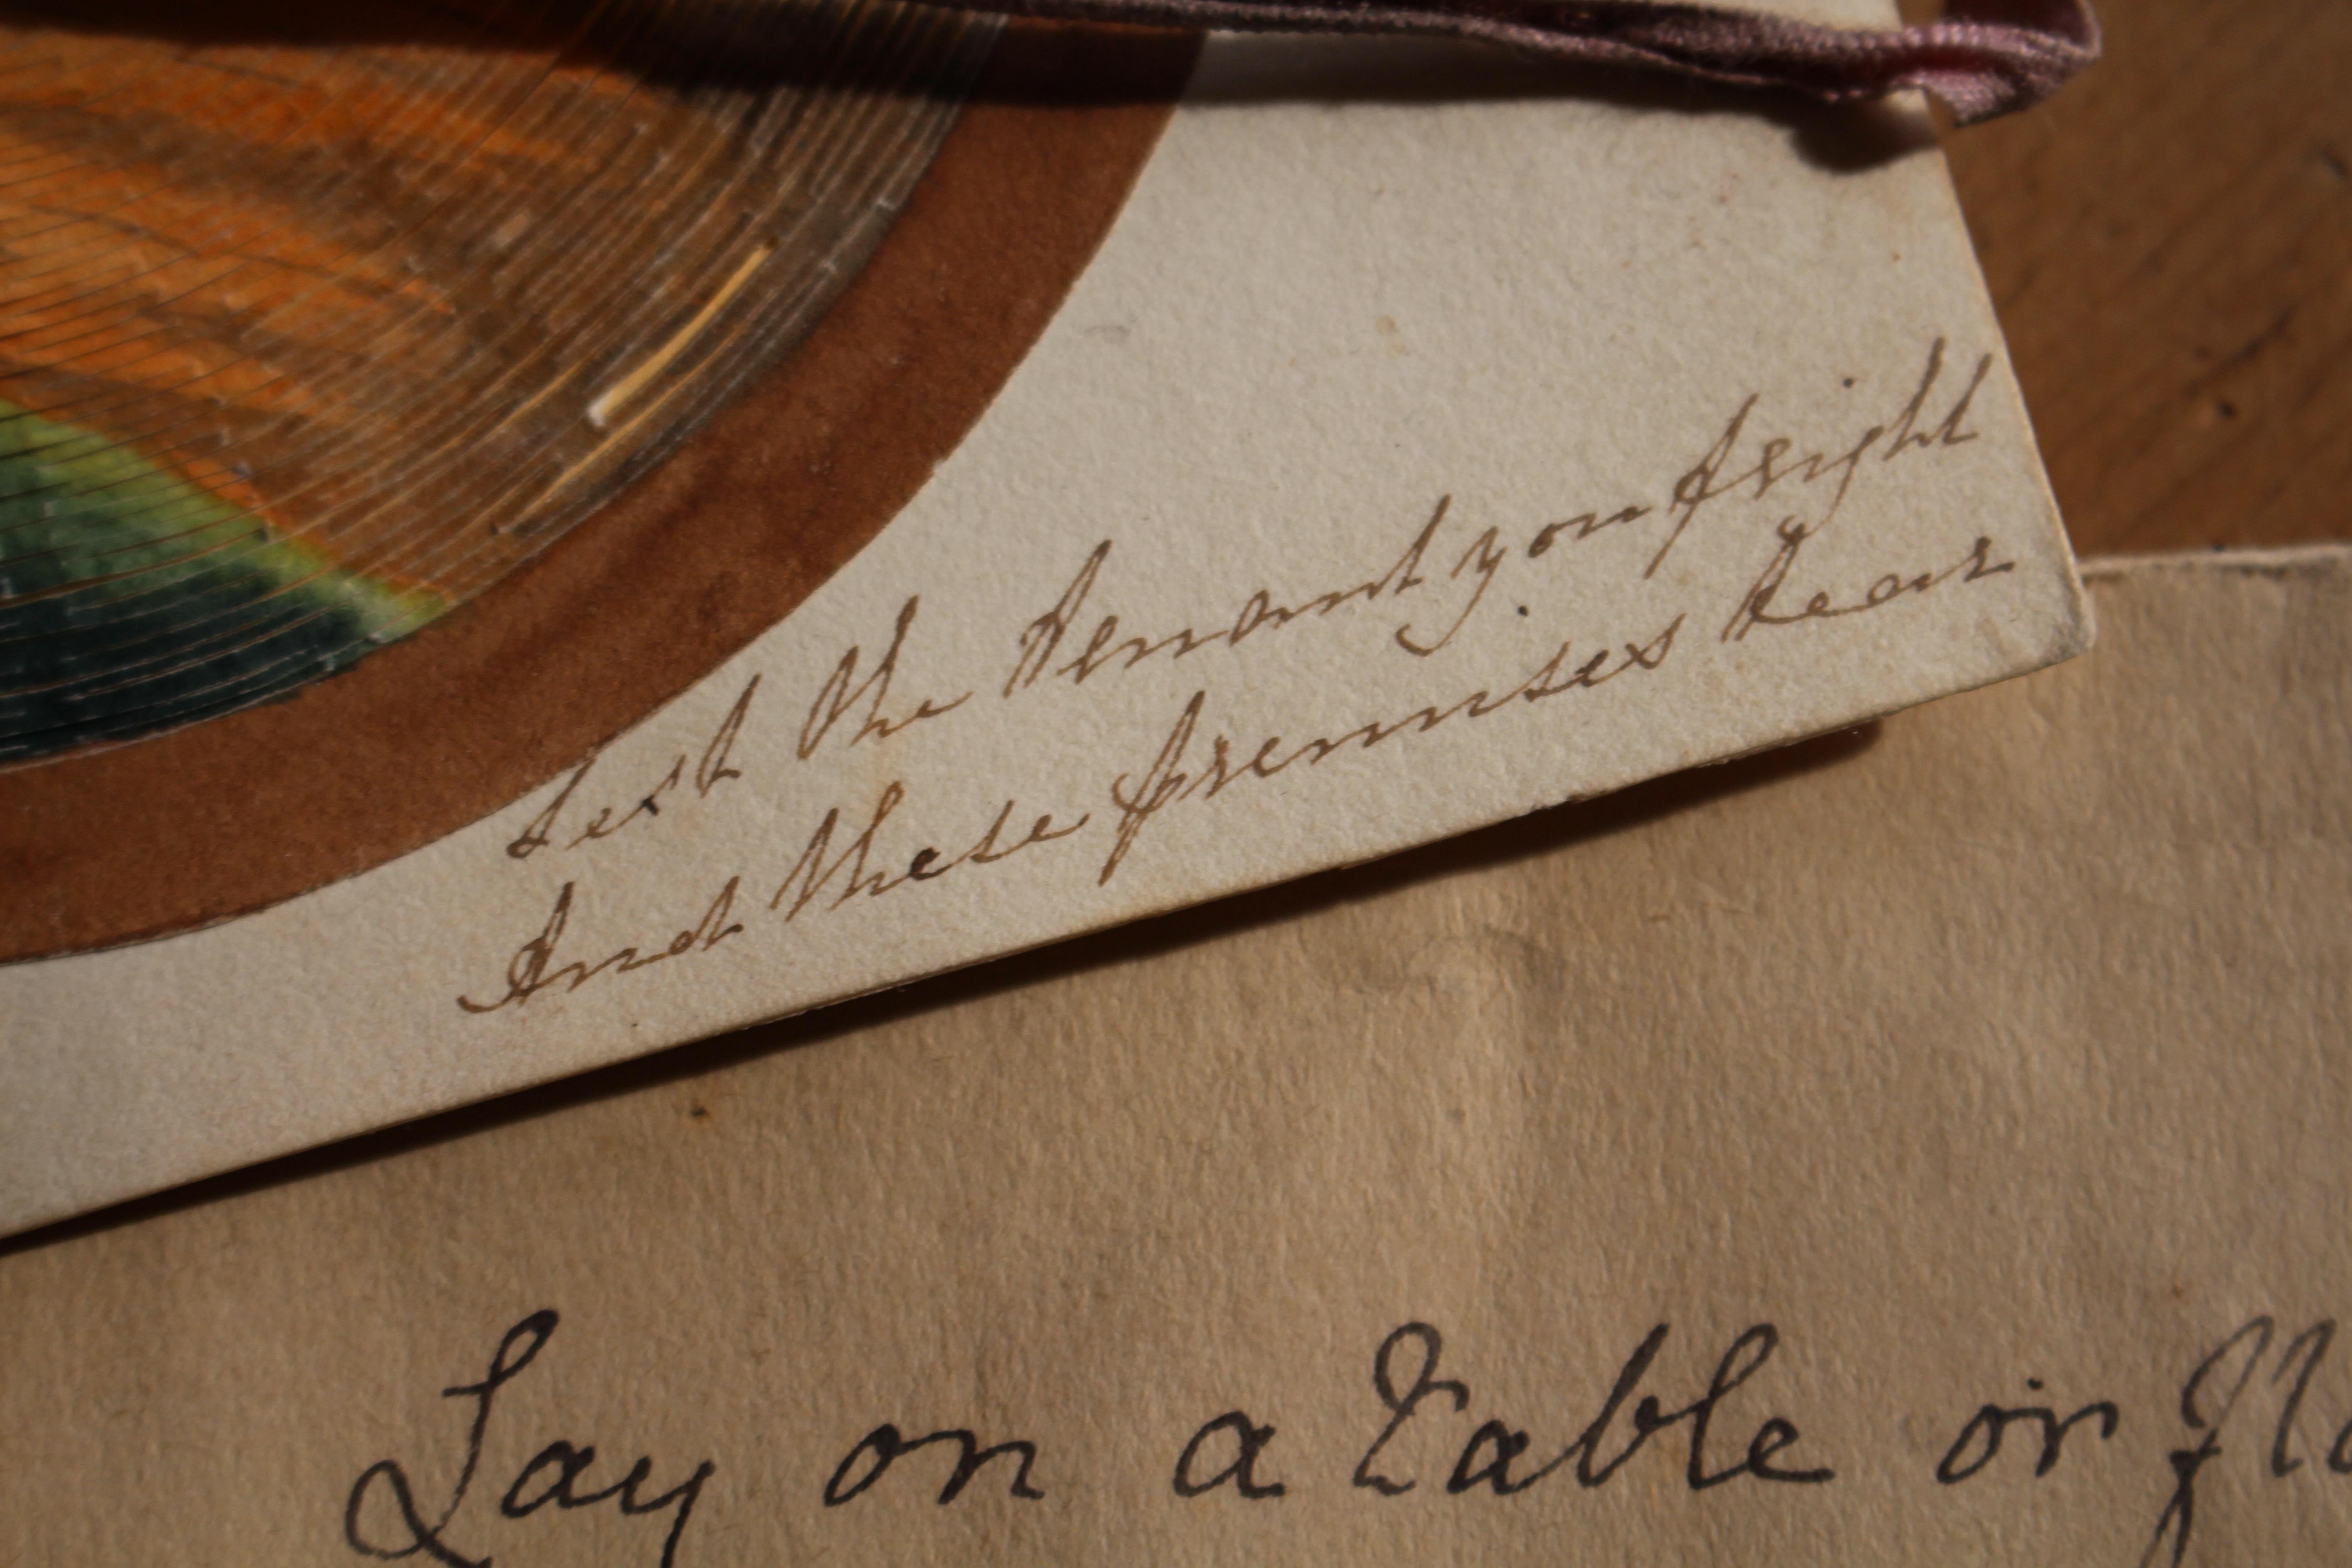 Lest the tenant you fright
And these premises tear
Lay on a Table or Flo